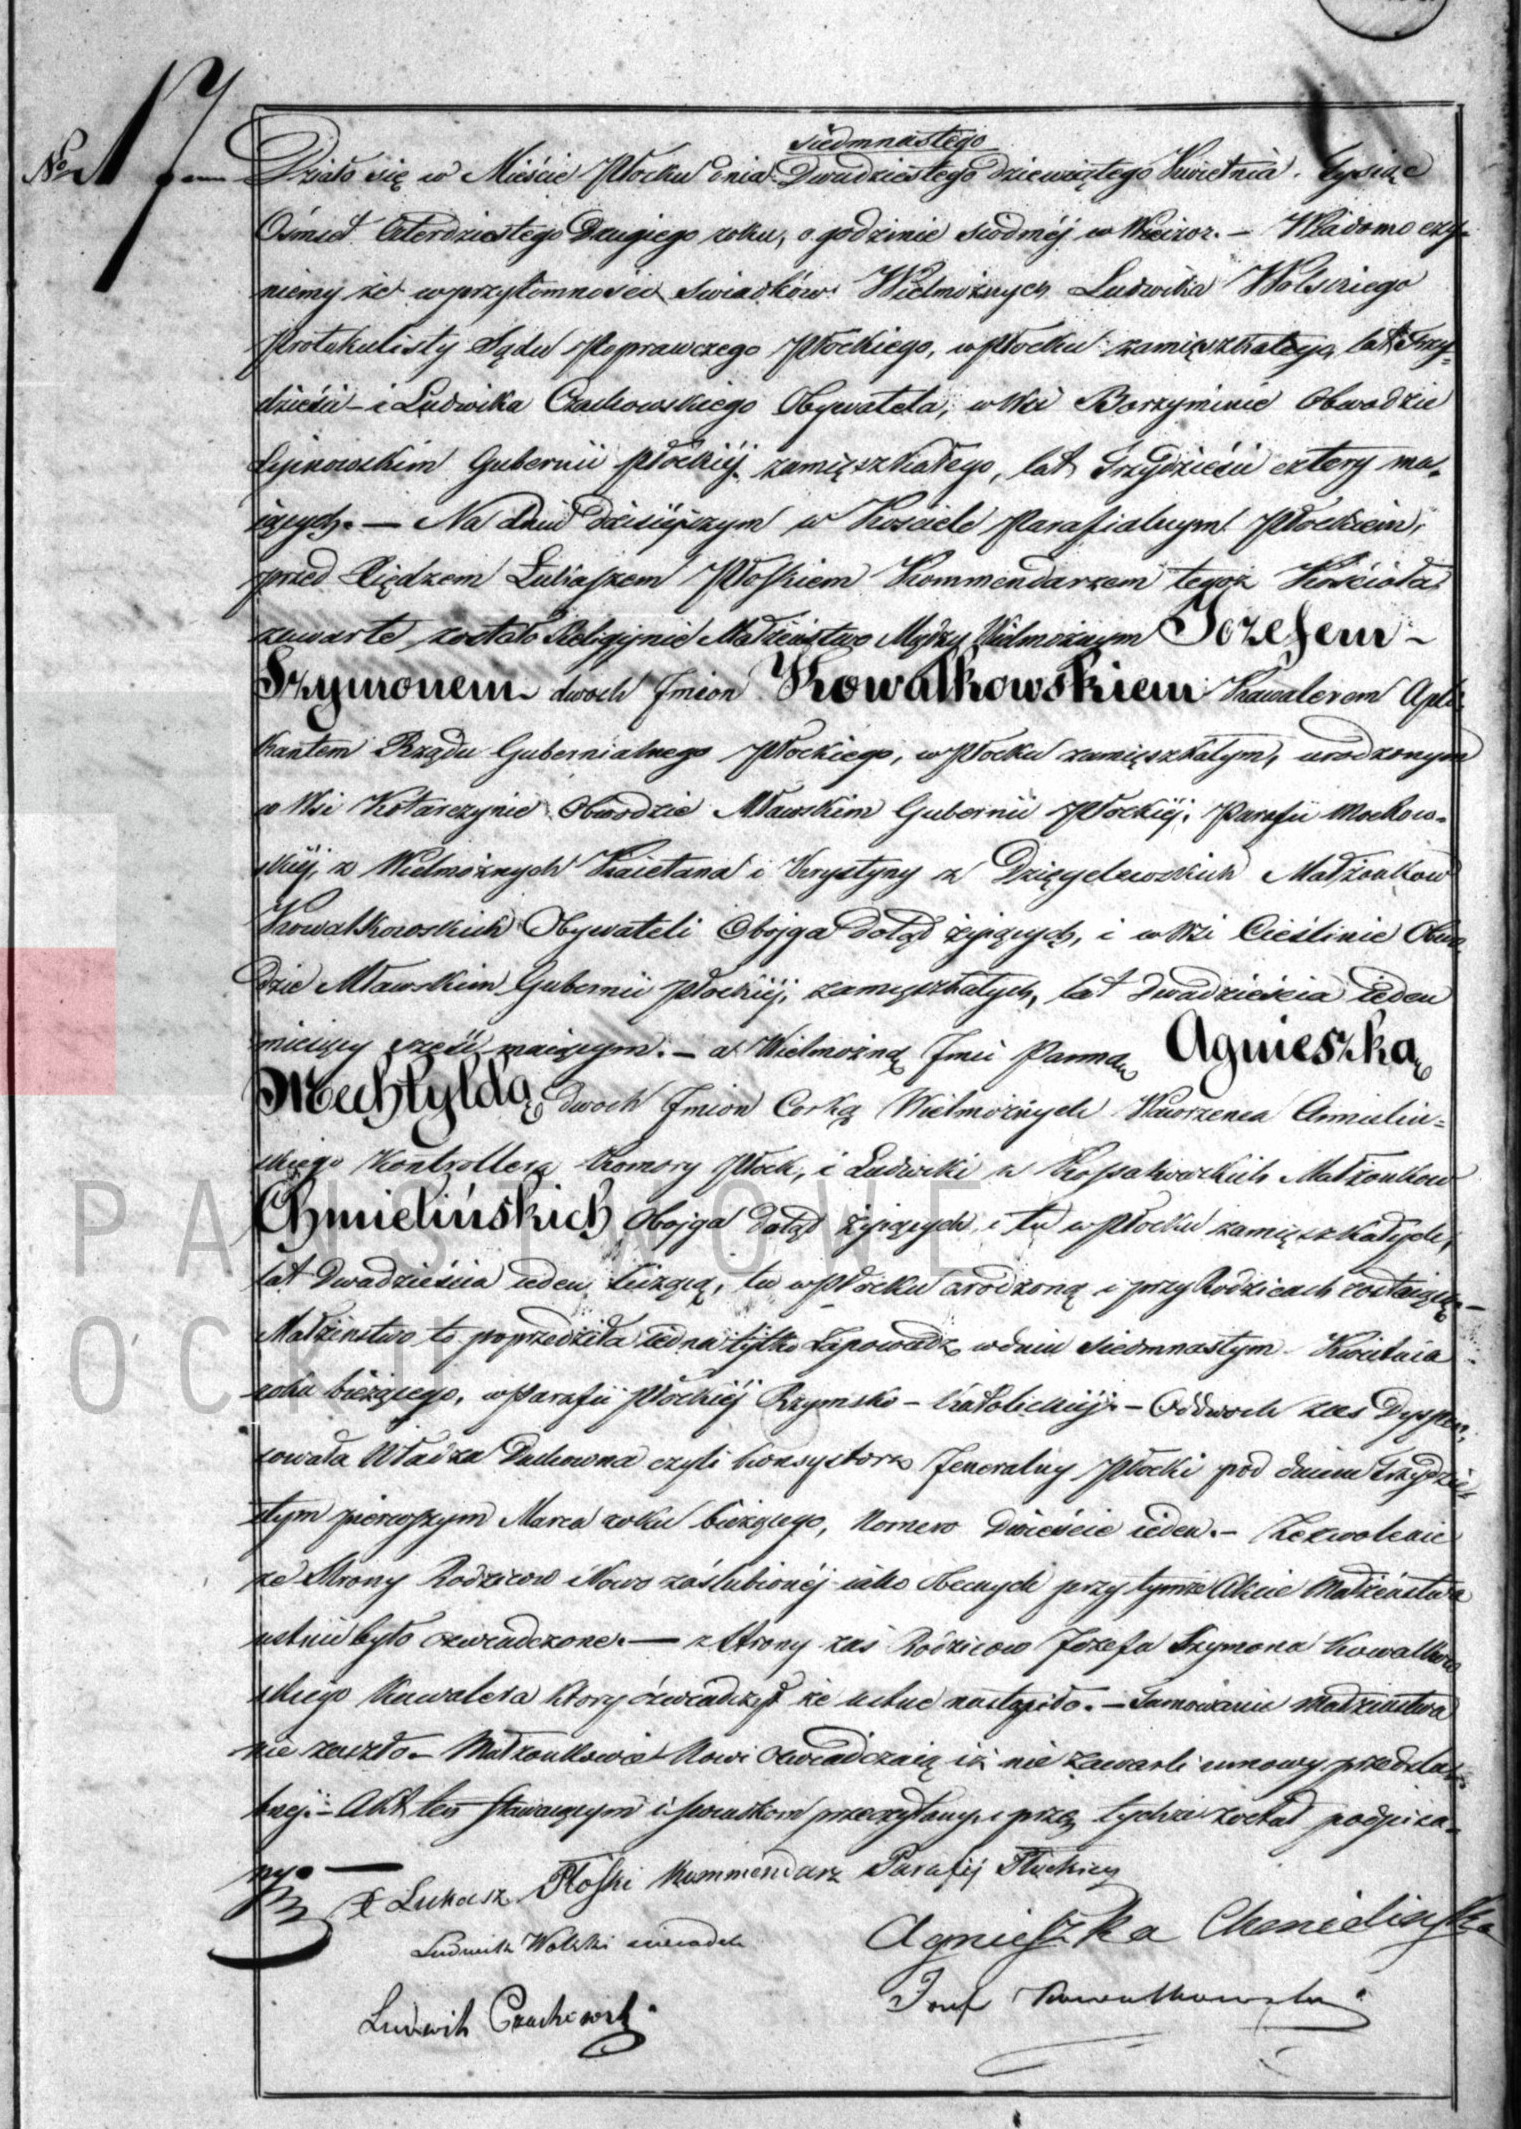 No 17.
siedmnastego
Działo się w Mieście Płocku dnia Dwudziestego dziewiątego Kwietnia Tysiąc
Ośmset Czterdziestego Drugiego roku, o godzinie siódmej w Wieczor. – Wiadomo czy-
niemy że w przytomności Swiadków Wielmożnych Ludwika Wolskiego
Protokulisty Sądu Poprawczego Płockiego, w Płocku zamięszkałego, lat Trzy-
dzieści – i Ludwika Czachowskiego Obywatela, w Wsi Borzyminie Obwodzie
Lipnowskim Gubernii Płockiéj zamięszkałego, lat Trzydzieści cztery ma-
iących. — Na dniu dzisiéjszym w Kościele Parafialnym Płockiem,
przed Xiędzem Łukaszem Płoskiem Kommendarzem tegoż Kościoła
zawarte zostało Religijnie Małżeństwo Między Wielmożnym Jozefem –
Szymonem dwoch Imion Kowalkowskiem Kawalerem Apli-
kantem Rządu Gubernialnego Płockiego, w Płocku zamięszkałym, urodzonym
w Wsi Kołaczynie Obwodzie Mławskim Gubernii Płockiéj, Parafii
z Wielmożnych Kaietana i Krystyny z Dzięgielewskich Małżonkow
Kowalkowskich Obywateli Obojga dotąd żyiących, i w Wsi Cieślinie Obwo-
dzie Mławskim Gubernii Płockiéj, zamięszkałych, lat dwadzieścia ieden
miesięcy sześć maiącym. – a Wielmożną Imć Panną Agnieszką
Mechtyldą dwoch Imion Corką Wielmożnych Wawrzenca Chmieliń-
skiego Kontrollera Komory Płock, i Ludwiki z Małżonkow
Chmielińskich Obojga dotąd żyiących i tu w Płocku zamięszkałych,
lat Dwadzieścia ieden liczącą, tu w Płocku urodzoną i przy Rodzicach zostaiącą –
Małżeństwo to poprzedziła iedna tylko Zapowiedź w dniu siedmnastym Kwietnia
roku bieżącego, w Parafii Płockiéj Rzymsko – Katolickiéj. – Od dwoch zas Dyspen-
sowała Władza Duchowna czyli Konsystorz Jeneralny Płocki pod dniem Trzydzie-
stym pierwszym Marca roku bieżącego, Numero Dwieście ieden. – Zezwolenie
ze Strony Rodzicow Nowo zaślubionéj iako obecnych przy tymże Akcie Małżeństwa
ustnie było oświadczone. — z strony zaś Rodzicow Jozefa Szymona Kowalkow-
skiego Kawalera ktory oświadczył że ustne nastąpiło. – Tamowanie Małżeństwa
nie zaszło. – Małżonkowie Nowi oświadczaią iż nie zawarli umowy przedślu-
bnéj. – Akt ten Stawaiącym i świadkom przeczytany i przez tychże został podpisa-
ny. —
X Łukasz Płoski Kommendarz Parafij Płockiey
Ludwik Wolski świadek
Agnieszka Chmielińska
Ludwik Czachowski
Józef Kowalkowski
PAŃSTWOWE
OCKU